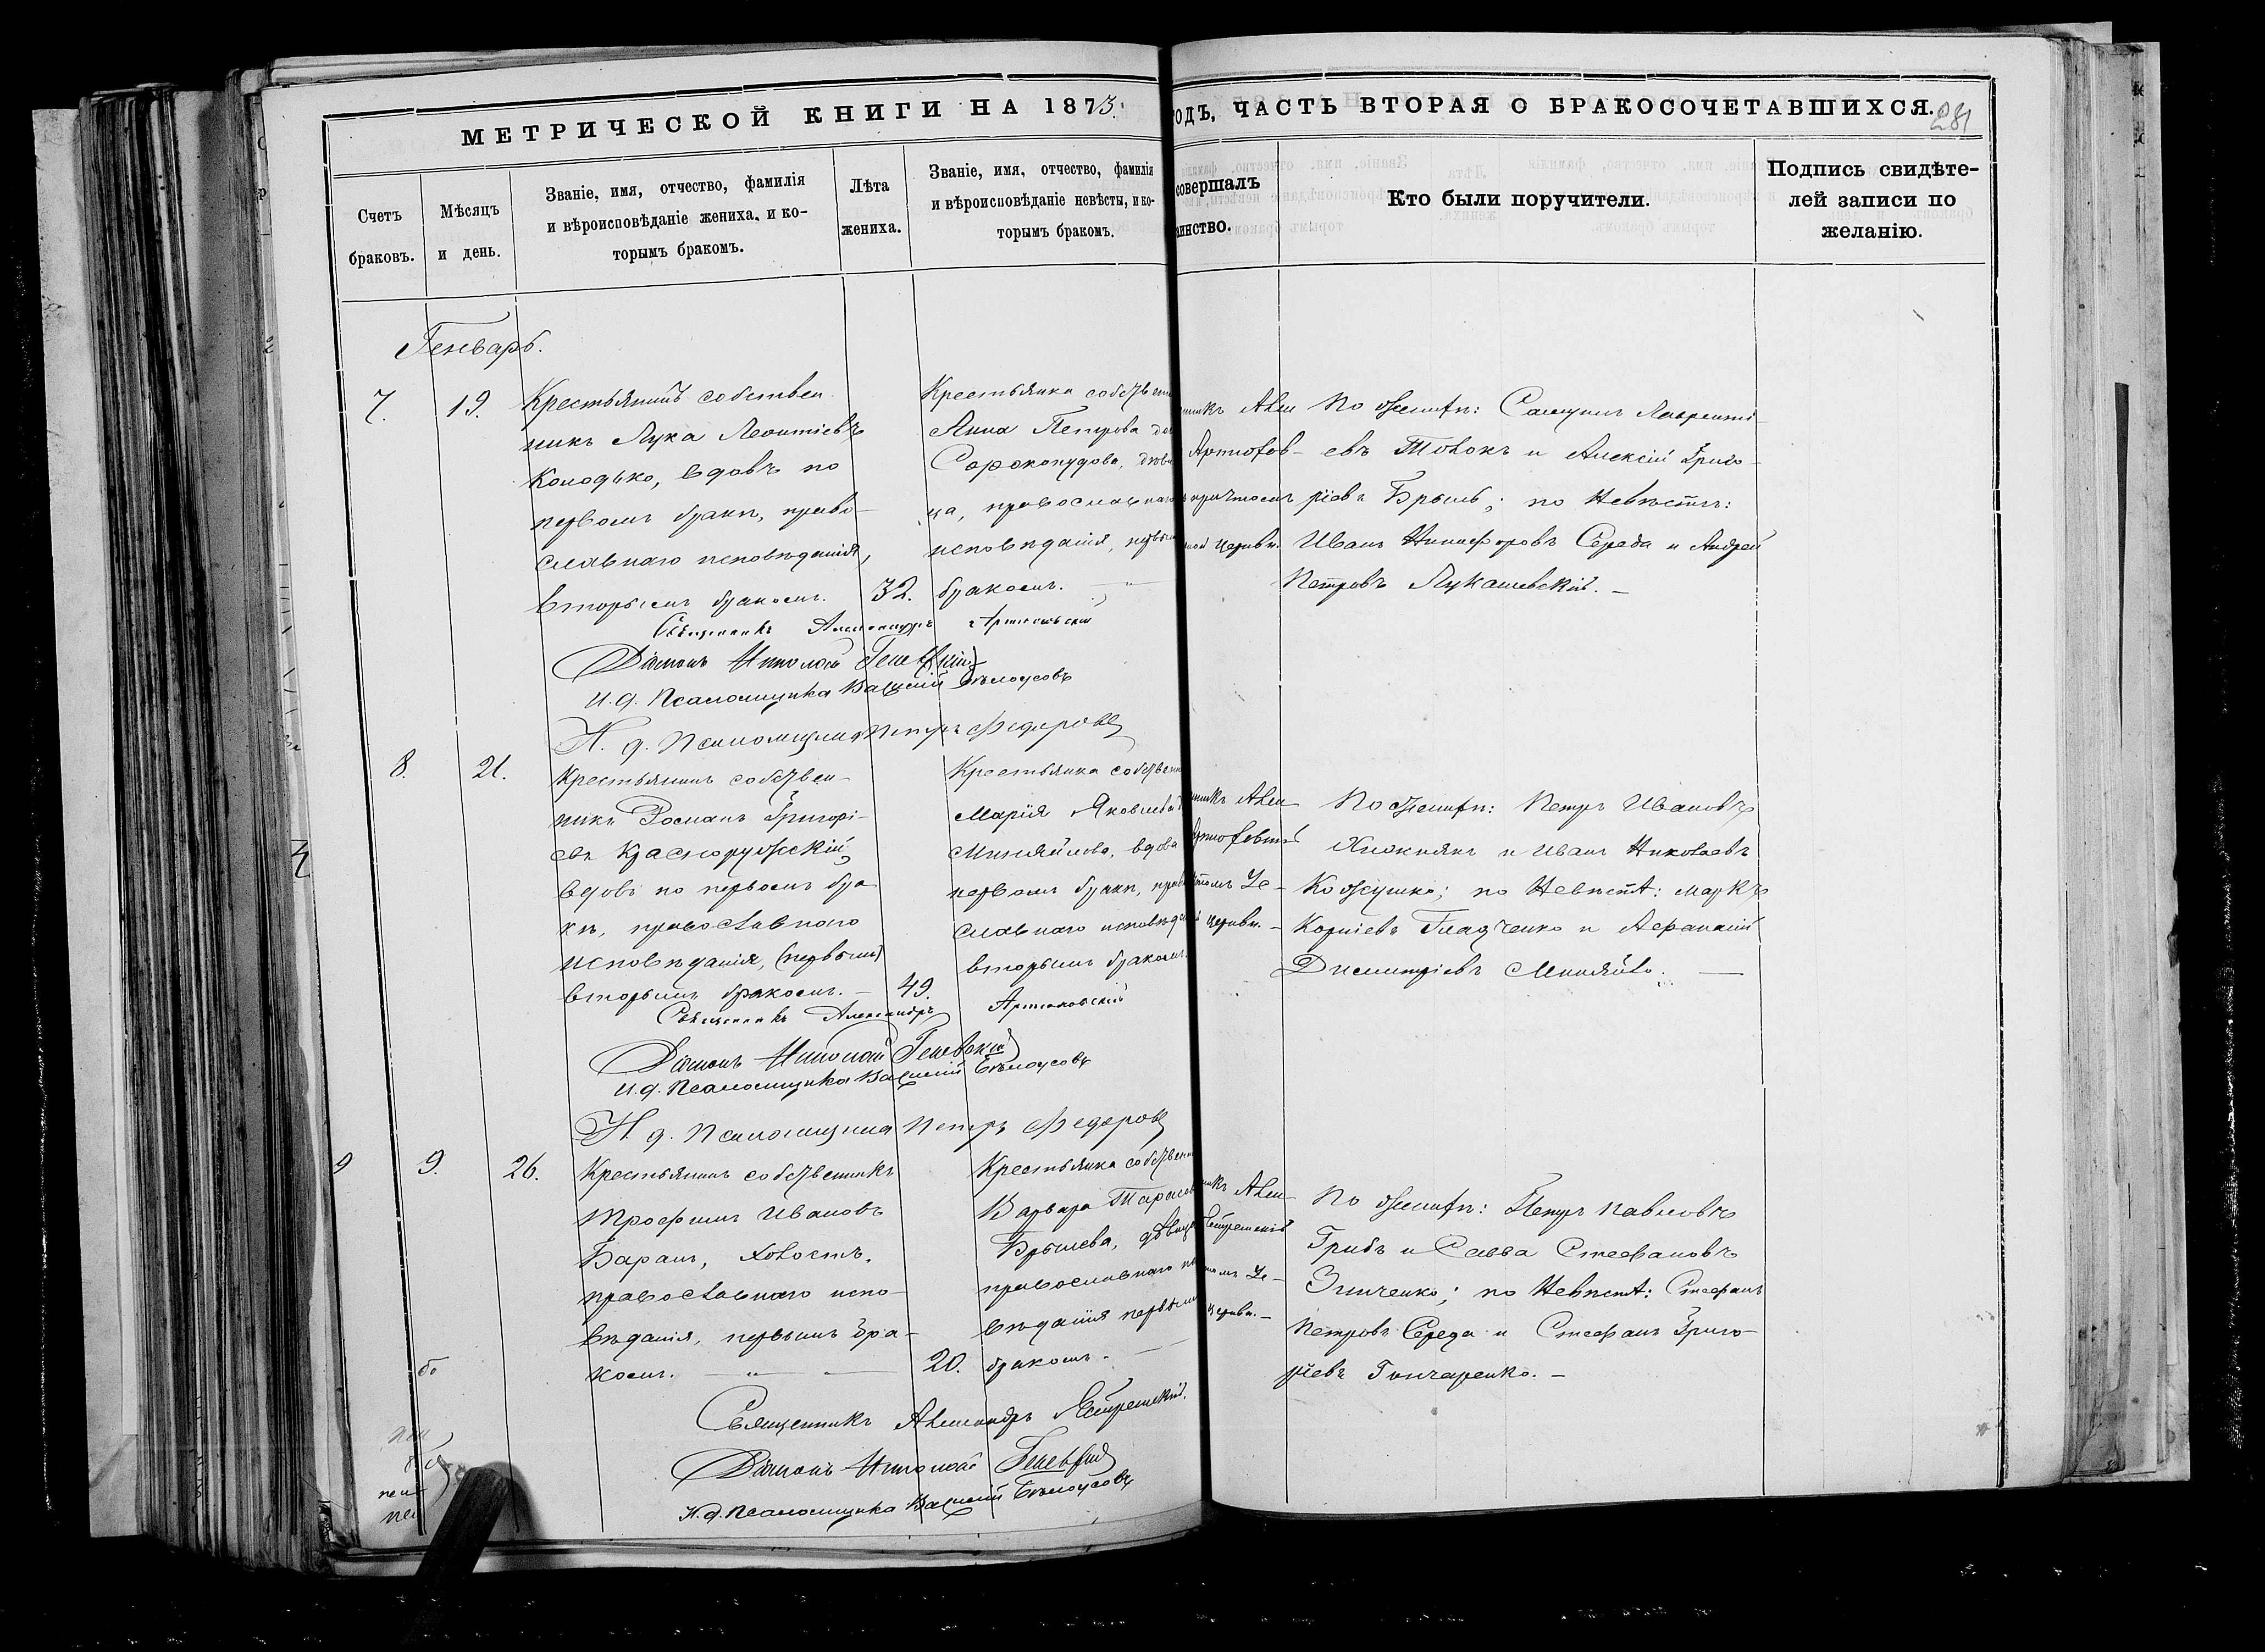 МЕТРИЧЕСКОЙ КНИГИ НА 1873.
ОДЪ, ЧАСТЬ ВТОРАЯ О БРАКОСОЧЕТАВШИХСЯ.
281
Счетъ браковъ.
Мѣсяцъ и день.
Званіе, имя, отчество, фамилія
и вѣроисповѣданіе жениха, и ко-
торымъ бракомъ.
Лѣта
жениха.
Званіе, имя, отчество, фамилія
и вѣроисповѣданіе невѣсты, и ко-
торымъ бракомъ.
совершалъ
инство.
Кто были поручители.
Подпись свидѣте-
лей записи по
желанію.
Генварь.
7.
19.
Крестьянинъ собствен
никъ Лука Леонтіевъ
Колодько, вдовъ по
первомъ бракѣ, право-
славнаго исповѣданія,
вторымъ бракомъ.
32.
Крестьянка собствен
Анна Петрова до
Сорокопудова, дѣви
ца, православнаго
исповѣданія, первым
бракомъ.
никъ Алек
Артюхов-
причтомъ
Церкви.
По женихѣ: Самуилъ Лавренті-
евъ Товокъ и Алексій Григо-
ріевъ Брыль; по Невѣстѣ:
Иванъ Никифоровъ Середа и Андрей
Петровъ Лукашевскій. –
Священникъ Александръ Артюховскій
Діаконъ Николай
И. д. Псаломщика Василій Бѣлоусовъ
И. д. Псаломщика Петръ Федоровъ
8.
21.
Крестьянинъ собствен-
никъ Романъ Григорі-
евъ Красноружскій,
вдовъ по первомъ бра-
кѣ, православнаго
исповѣданія, (первымъ)
вторымъ бракомъ. –
49.
Крестьянка собствен
Марія Яковлева
Миняйлова, вдова
первомъ бракѣ, прав
славнаго исповѣда
вторымъ бракомъ.
никъ Алек
Церкви. –
По женихѣ: Петръ Ивановъ
и Иванъ Николаевъ
Кожушко; по Невѣстѣ: Маркъ
Корніевъ Гладченко и Афанасій
Димитріевъ Миняйло. –
Священникъ Александръ Артюховскій
Діаконъ Николай
И. д. Псаломщика Василій Бѣлоусовъ
И. д. Псаломщика Петръ Федоровъ
9
9.
26.
Крестьянинъ собственникъ
Трофимъ Ивановъ
Баранъ, холостъ,
православнаго испо-
вѣданія, первымъ бра-
комъ.
20.
Крестьянка собствен
Варвара Тарасов
Брылева, дѣвица
православнаго
вѣданія первым
бракомъ. –
никъ Алек-
Церкви. –
По женихѣ: Петръ Павловъ
Грибъ и Савва Стефановъ
Зинченко; по Невѣстѣ: Стефанъ
Петровъ Середа и Стефанъ Григо-
ріевъ Гончаренко. –
Священникъ Александръ
Діаконъ Николай
И. д. Псаломщика Василій Бѣлоусовъ